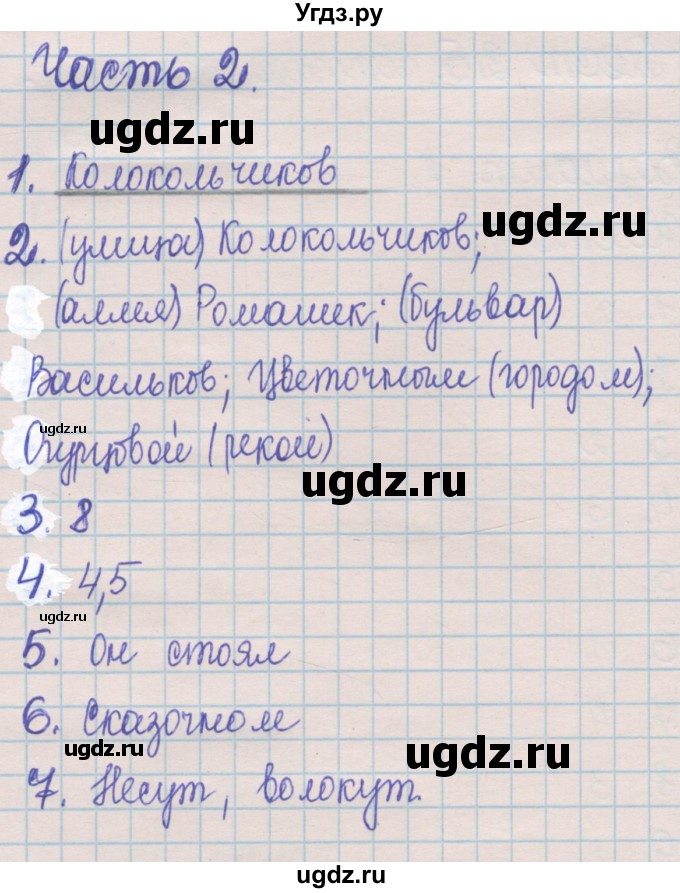 Угдз.ру
Часть 2.
ugdz.ru
1. Колокольчиков
ugdz.ru
2. (улица) Колокольчиков;
(аллея) Ромашек; (бульвар)
Васильков; Цветочным (городом);
ugdz.ru
Огурцовой (рекой)
ugdz.ru
3. 8
4. 4,5
ugdz.ru
5. Он стоял
6. Сказочном
ugdz.ru
ugdz.ru
7. Несут, волокут.
ugdz.ru